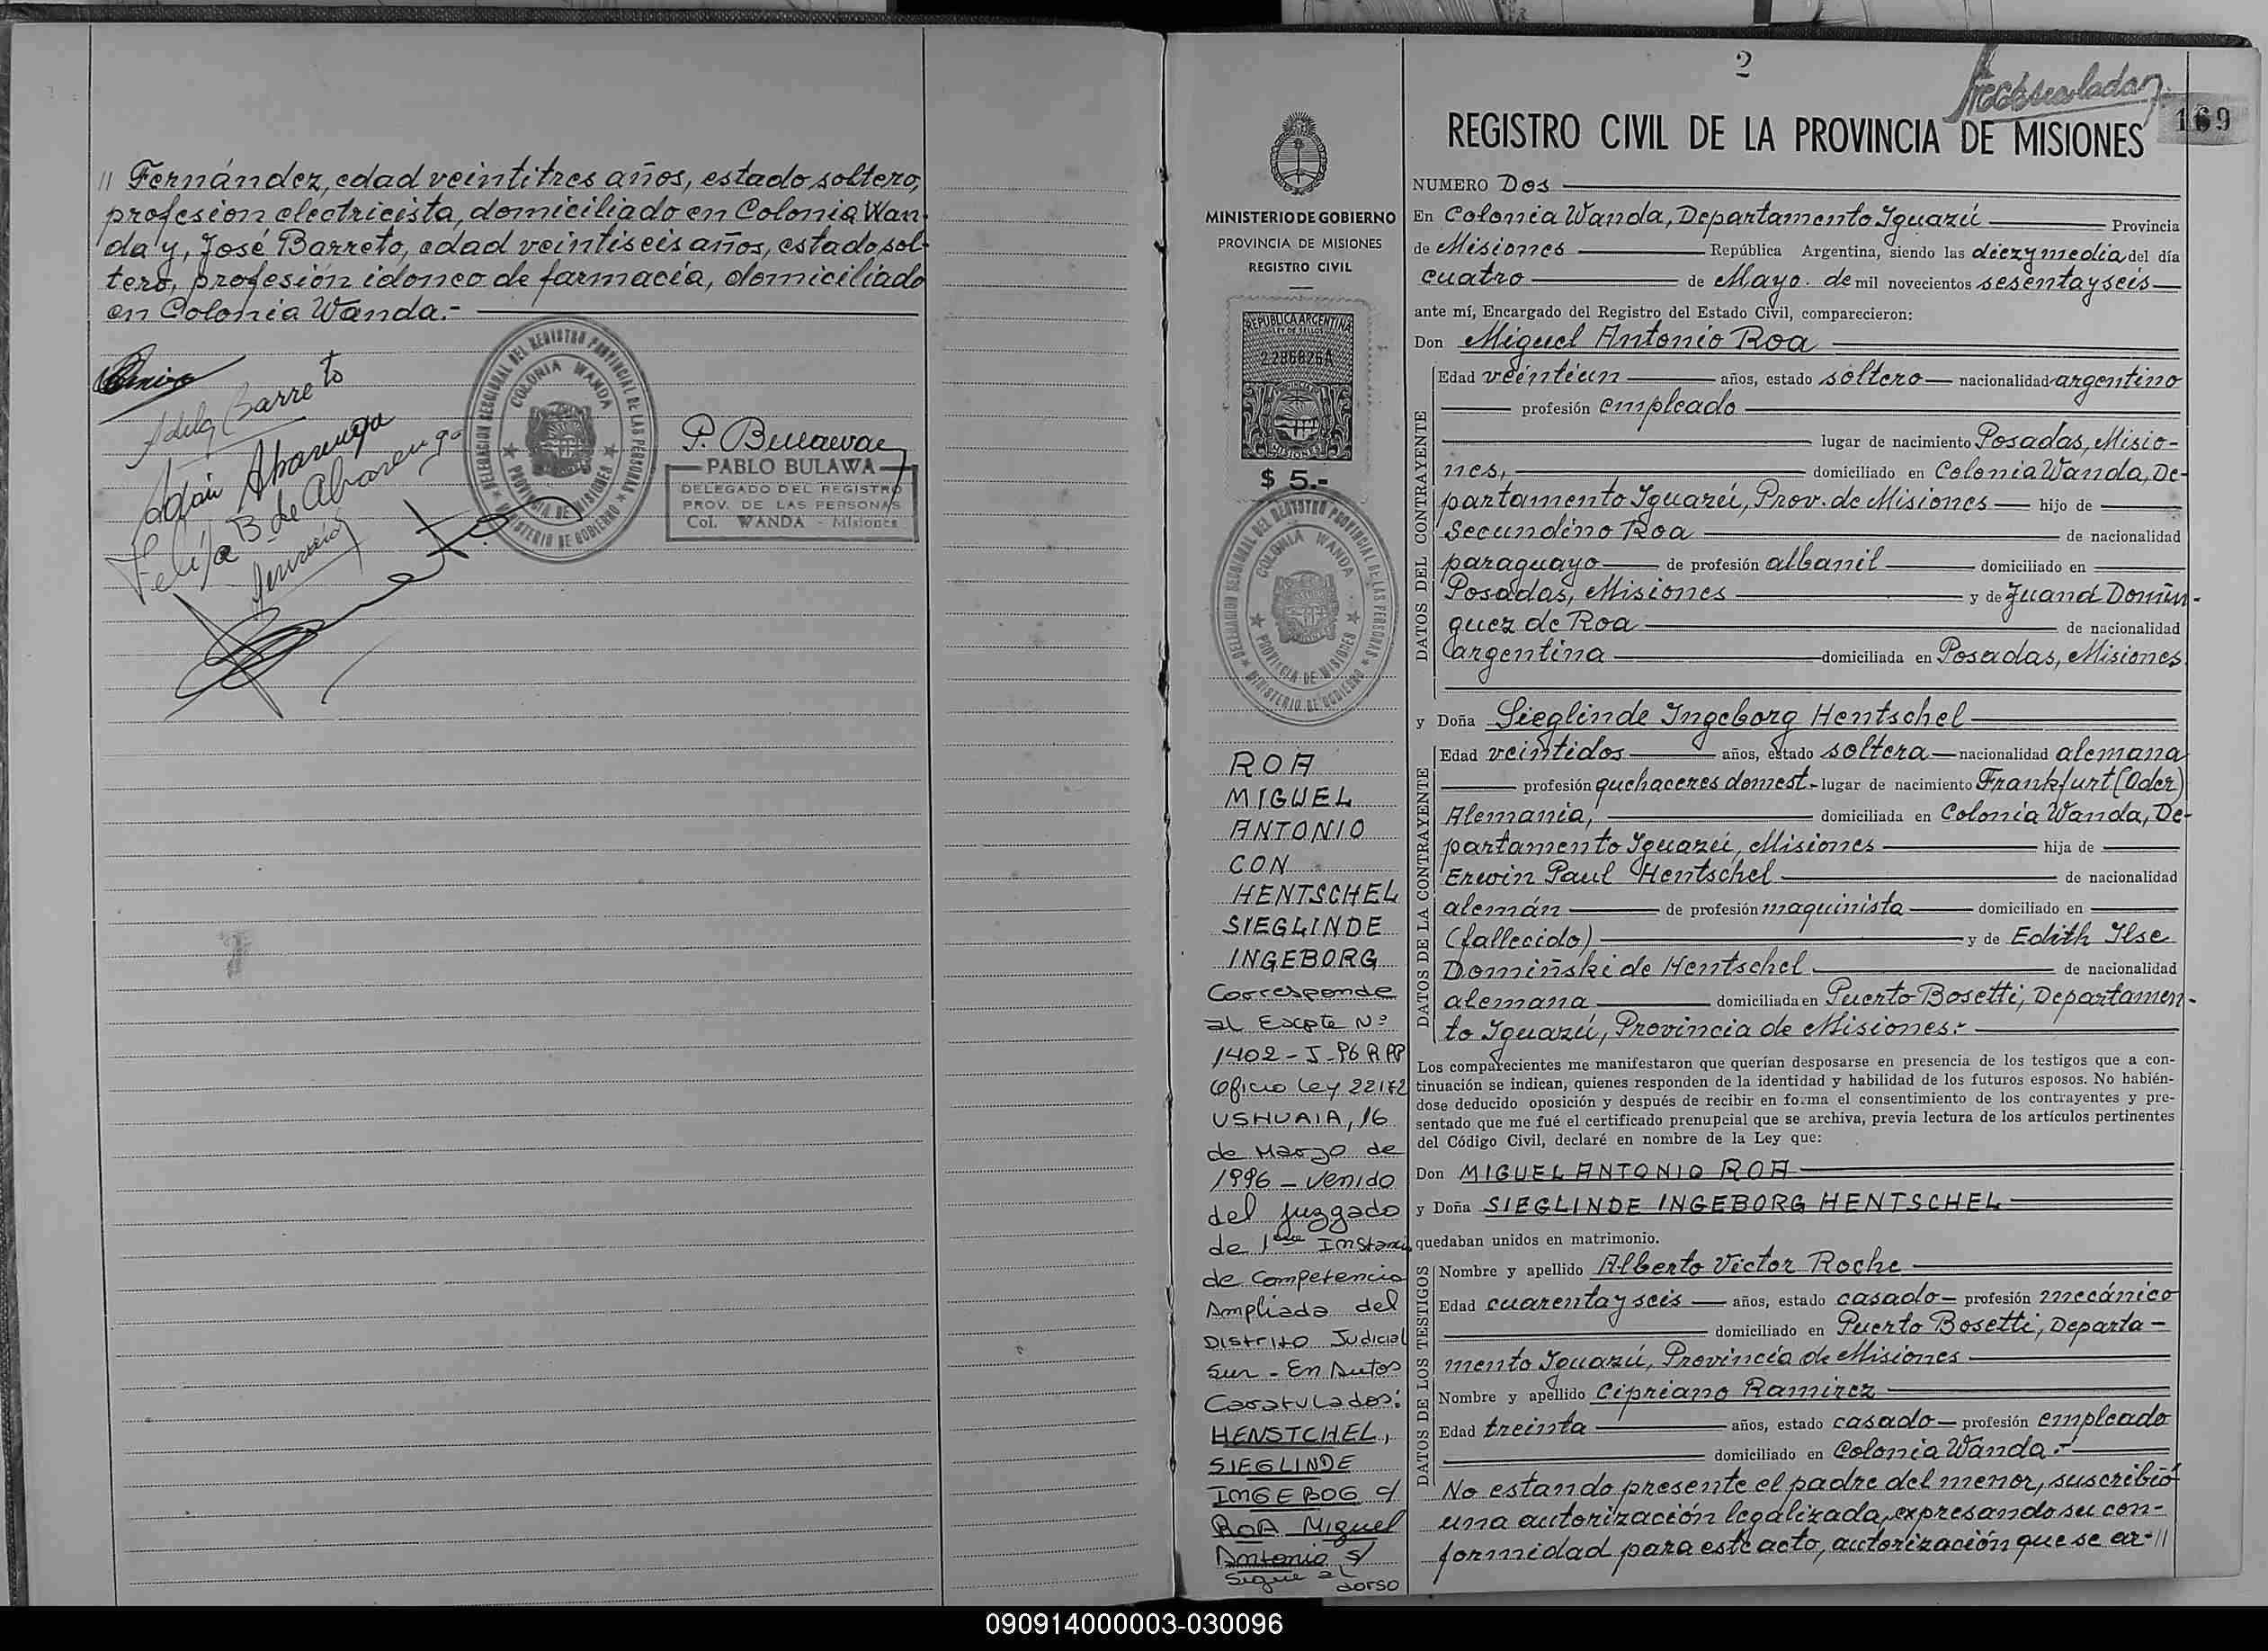 // Fernández, edad veintitres años, estado soltero,
profesion electricista, domiciliado en Colonia Wan-
da y, José Barreto, edad veintiseis años, estado sol-
tero, profesión idoneo de farmacia, domiciliado
en Colonia Wanda.-
Adela Barreto
Adán Abarenga
Felisa B de Abarenga
DELEGACION SECCIONAL DEL REGISTRO PROVINCIAL DE LAS PERSONAS
COLONIA WANDA
PROVINCIA DE MISIONES
MINISTERIO DE GOBIERNO
P. Bulawa
PABLO BULAWA
DELEGADO DEL REGISTRO
PROV. DE LAS PERSONAS
Col. WANDA - Misiones
MINISTERIO DE GOBIERNO
PROVINCIA DE MISIONES
REGISTRO CIVIL
REPUBLICA ARGENTINA
LEY DE SELLOS
2286826A
PROVINCIA DE
MISIONES
$ 5.-
DELEGACION SECCIONAL DEL REGISTRO PROVINCIAL DE LAS PERSONAS
COLONIA WANDA
PROVINCIA DE MISIONES
MINISTERIO DE GOBIERNO
ROA
MIGUEL
ANTONIO
CON
HENTSCHEL
SIEGLINDE
INGEBORG
Corresponde
al Excpte Nº
1402-J-96 R PP
Oficio Ley 22172
USHUAIA, 16
de Marzo de
1996 - venido
del juzgado
de 1era Instancia
de Competencia
Ampliada del
Distrito Judicial
Sur - En Autos
Caratulados:
HENSTCHEL,
SIEGLINDE
IMGEBOG c/
ROA Miguel
Antonio s/
Sigue al
dorso
2
169
REGISTRO CIVIL DE LA PROVINCIA DE MISIONES
NUMERO Dos
En Colonia Wanda, Departamento Iguazú Provincia
de Misiones República Argentina, siendo las diez y media del día
cuatro de Mayo. de mil novecientos sesenta y seis
ante mí, Encargado del Registro del Estado Civil, comparecieron:
Don Miguel Antonio Roa
DATOS DEL CONTRAYENTE
Edad veintiun años, estado soltero nacionalidad argentino
profesión empleado
lugar de nacimiento Posadas, Misio-
nes, domiciliado en Colonia Wanda, De-
partamento Iguazú, Prov. de Misiones hijo de
Secundino Roa de nacionalidad
paraguayo de profesión albanil domiciliado en
Posadas, Misiones y de Juana Domin-
guez de Roa de nacionalidad
argentina domiciliada en Posadas, Misiones
y Doña Sieglinde Ingeborg Hentschel
DATOS DE LA CONTRAYENTE
Edad veintidos años, estado soltera nacionalidad alemana
profesión quehaceres domest. lugar de nacimiento Frankfurt (Oder)
Alemania, domiciliada en Colonia Wanda, De-
partamento Iguazú, Misiones hija de
Erwin Paul Hentschel de nacionalidad
alemán de profesión maquinista domiciliado en
(fallecido) y de Edith Ilse
Domiñski de Hentschel de nacionalidad
alemana domiciliada en Puerto Bosetti, Departamen-
to Iguazú, Provincia de Misiones.-
Los comparecientes me manifestaron que querían desposarse en presencia de los testigos que a con-
tinuación se indican, quienes responden de la identidad y habilidad de los futuros esposos. No habién-
dose deducido oposición y después de recibir en forma el consentimiento de los contrayentes y pre-
sentado que me fué el certificado prenupcial que se archiva, previa lectura de los artículos pertinentes
del Código Civil, declaré en nombre de la Ley que:
Don MIGUEL ANTONIO ROA
y Doña SIEGLINDE INGEBORG HENTSCHEL
quedaban unidos en matrimonio.
DATOS DE LOS TESTIGOS
Nombre y apellido Alberto Victor Roche
Edad cuarenta y seis años, estado casado profesión mecánico
domiciliado en Puerto Bosetti, Departa-
mento Iguazú, Provincia de Misiones
Nombre y apellido Cipriano Ramirez
Edad treinta años, estado casado profesión empleado
domiciliado en Colonia Wanda.-
No estando presente el padre del menor, suscribió
una autorización legalizada, expresando su con-
formidad para este acto, autorización que se ar-//
090914000003-030096